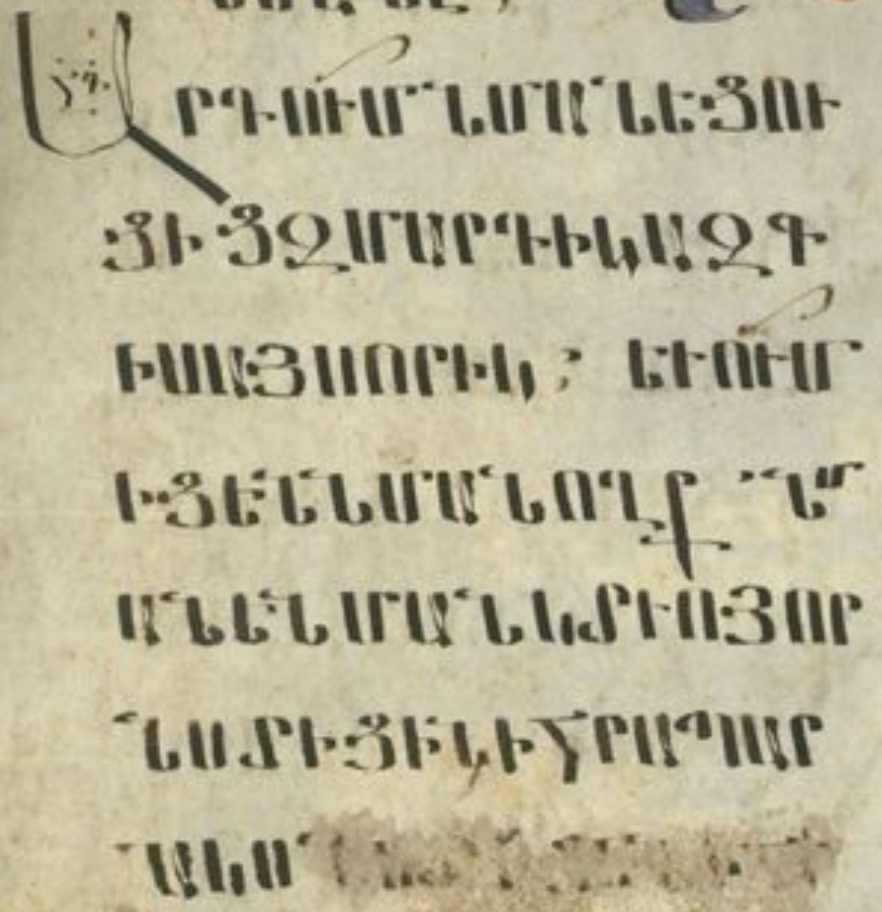 ԱՐԴՈՒՄՆՄԱՆԵՑՈՒ
ՑԻՑԶՄԱՐԴԻԿԱԶԳ
ԻՍԱՅՍՈՐԻԿ։ ԵՒՈՒՄ
ԻՑԵՆՆՄԱՆՈՂՔ ՆՄ
ԱՆԵՆՄԱՆԿՏՒՈՅՈՐ
ՆՍՏԻՑԵՆԻՀՐԱՊԱՐ
ԱԿՍ